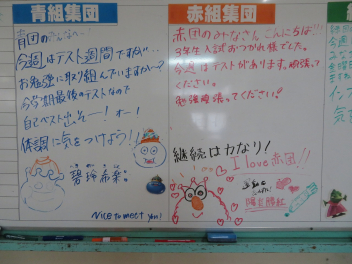 青組集団
青団のみんなへ
今週はテスト週間ですが…
お勉強に取り組んでいますかー?
今学期最後のテストなので
自己ベスト出そー! オー!
体調に気をつけよう!!
碧玲希菜。
Nice to meet you!
赤組集団
赤団のみなさん こんにちは!!!
3年生入試おつかれ様でした。
今週はテストがあります。頑張って
ください。
勉強頑張ってください!
継続は力なり!
I love 赤団!!